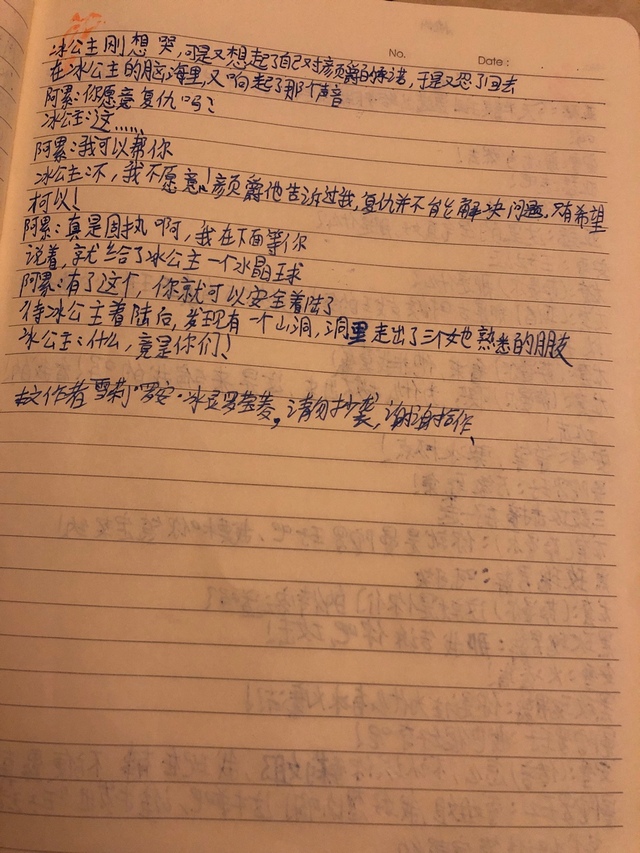 No.
Date:
冰公主刚想哭,可是又想起了自己对彦页爵的承诺,于是又忍了回去
在冰公主的脑海里,又响起了那个声音
阿累:你愿意复仇吗?
冰公主:这......
阿累:我可以帮你
冰公主:不,我不愿意!彦页爵他告诉过我,复仇并不能解决问题,只有希望
柯以!
阿累:真是固执啊,我在下面等你
说着,就给了冰公主一个水晶球
阿累:有了这个,你就可以安全着陆了
待冰公主着陆后,发现有一个山洞,洞里走出了三个她熟悉的朋友
冰公主:什么,竟是你们!
本文作者雪莉·罗安·冰 罗 菱,请勿抄袭,谢谢合作、